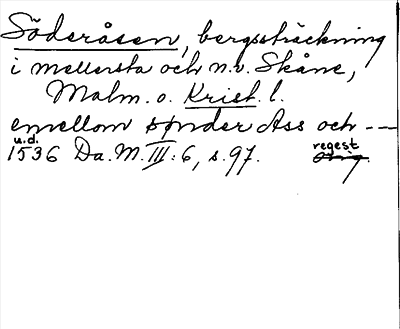 Söderåsen, bergssträckning
i mellersta och n.v. Skåne,
Malm. o. Krist. l.
emellom synder Ass och ---
u.d. regest
1536 Da. M. III: 6, s. 97. Orig.